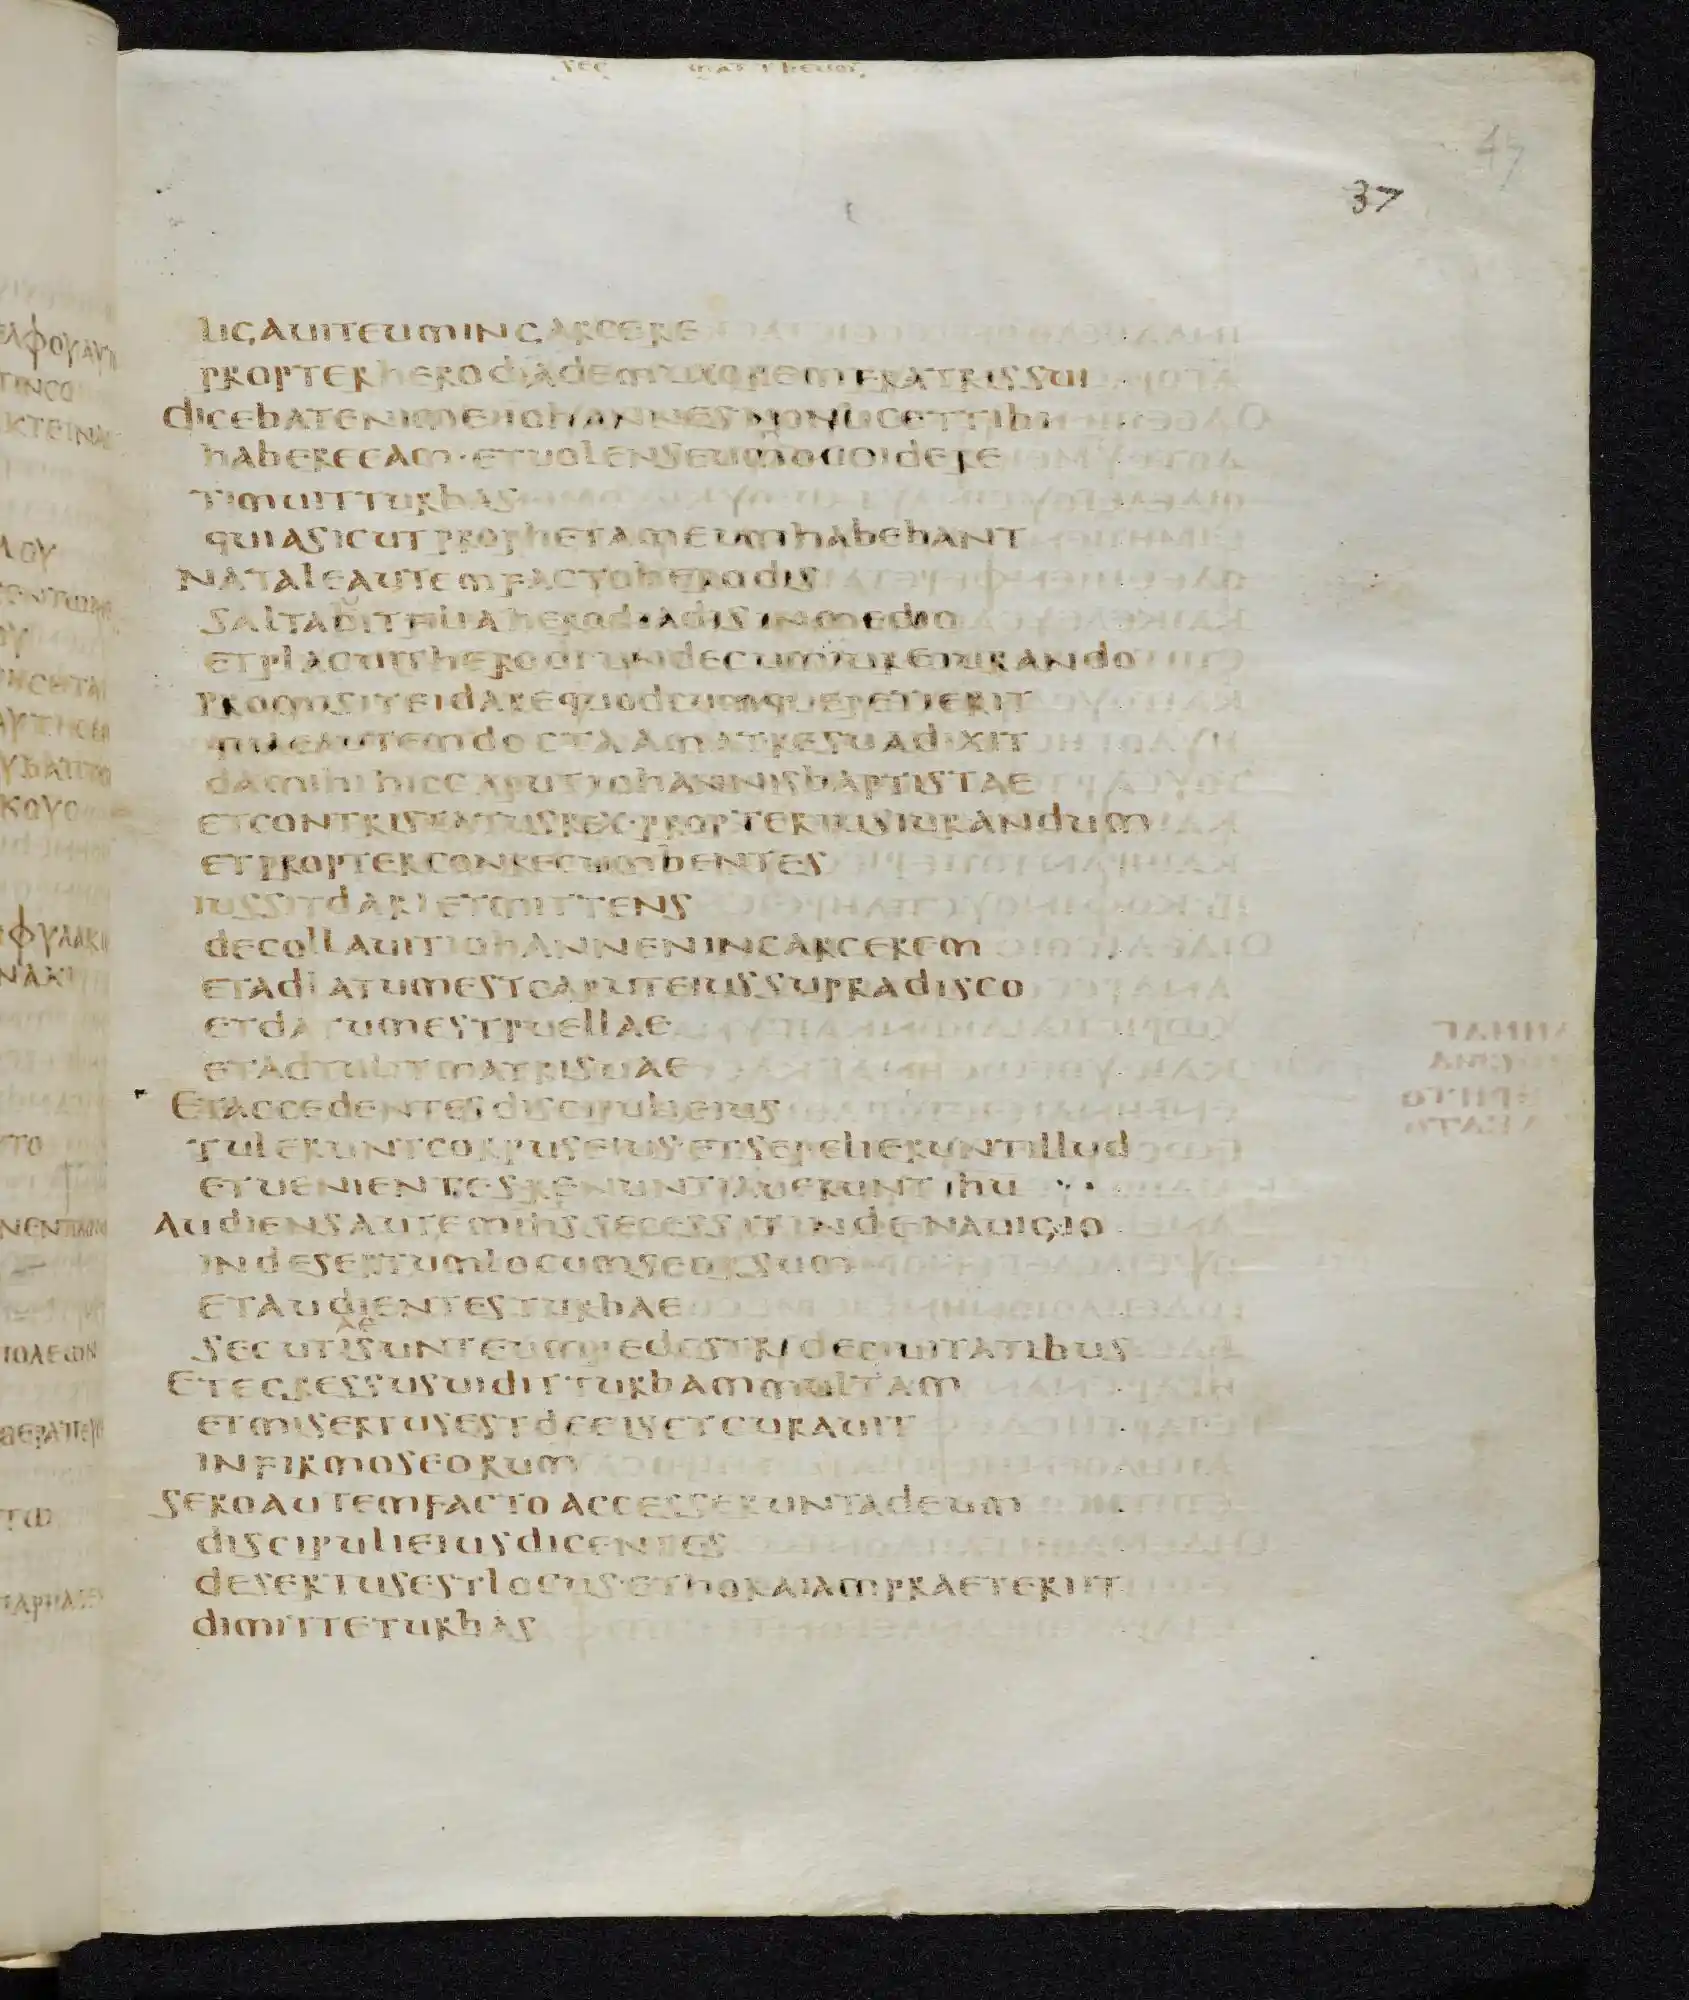 sec mattheum
47
37
ligauit eum in carcere
propter herodiadem uxorem fratris sui
dicebat enim ei iohannes non licet tibi
habere eam · et uolens eum occidere
timuit turbas
quia sicut prophetam eum habebant
natale autem facto herodis
saltabit filia herodiadis in medio
et placuit herodi unde cum iureiurando
promisit ei dare quodcumque petierit
autem docta a matre sua dixit
da mihi hic caput iohannis baptistae
et contristatus rex · propter iusiurandum
et propter conrecumbentes
iussit dari et mittens
decollauit iohannen in carcerem
et adlatum est caput eius supra disco
et datum est puellae
et adtulit matri suae
Et accedentes discipuli eius
tulerunt corpus eius · et sepelierunt illud
et uenientes renuntiauerunt ihu
Audiens autem ihs secessit inde nauigio
in desertum locum seorsum
et audientes turbae
ae
secuti sunt eum pedestri de ciuitatibus
Et egressus uidit turbam multam
et misertus est de eis et curauit
infirmos eorum
Sero autem facto accesserunt ad eum
discipuli eius dicentes
desertus est locus · et hora iam praeteriit
dimitte turbas